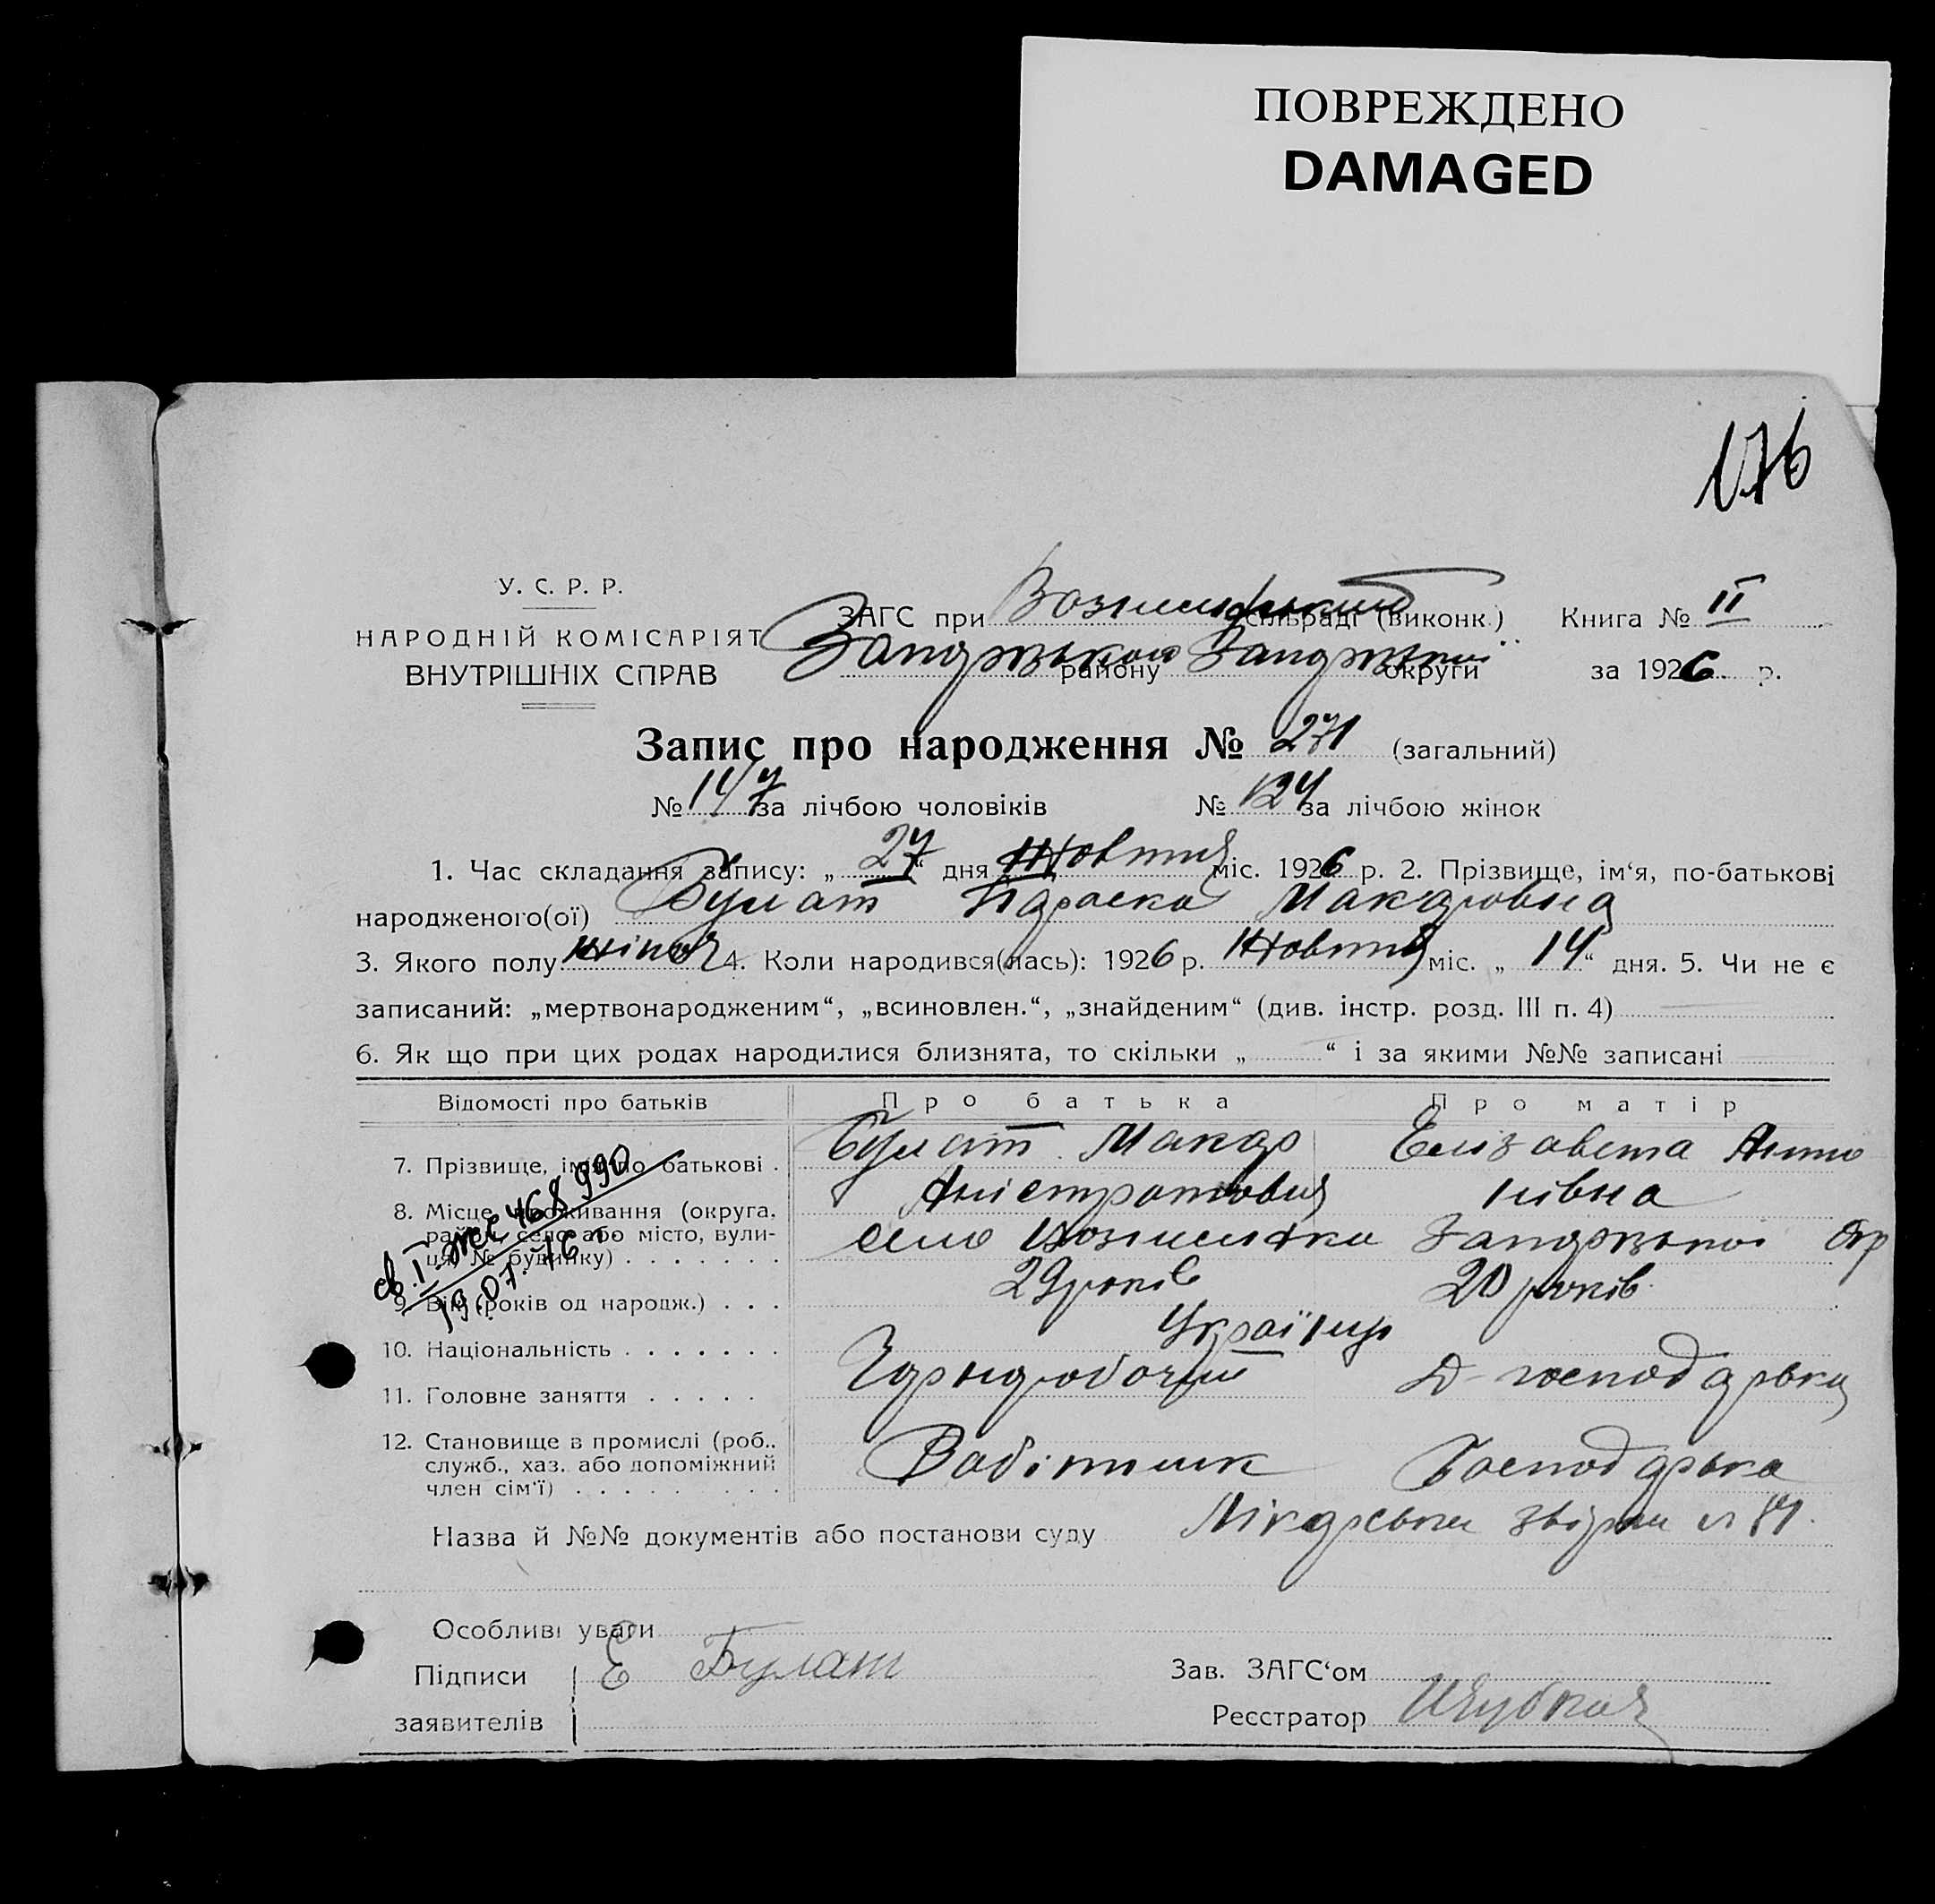 ПОВРЕЖДЕНО
DAMAGED
176
У. С. Р. Р.
НАРОДНІЙ КОМІСАРІЯТ
ВНУТРІШНІХ СПРАВ
ЗАГС при сільраді (виконк.) Книга № II
району округи за 1926 р.
Запис про народження № 271 (загальний)
№ 147 за лічбою чоловіків № 124 за лічбою жінок
1. Час складання запису: „27“ дня Жовтня міс. 1926 р. 2. Прізвище, ім‘я, по-батькові
народженого(ої) Булат Параска Макаровна
3. Якого полу жіноч 4. Коли народився(лась): 1926 р. Жовтня міс. „14“ дня. 5. Чи не є
записаний: „мертвонародженим“, „всиновлен.“, „знайденим“ (див. інстр. розд. III п. 4)
6. Як що при цих родах народилися близнята, то скільки „ “ і за якими №№ записані
Відомості про батьків Про батька Про матір
7. Прізвище, ім‘я по батькові . Булат Макар Елізавета Анто
нівна
8. Місце проживання (округа, район, село або місто, вули-
ця, № будинку) . . . . . . . село Вознисенка Запоржської Окр
9. Вік (років од народж.) . . . 29 років 20 років
св. І жс 468990
19.07.76 г.
10. Національність . . . . . . . Українці
11. Головне заняття . . . . . Чорноробочий Д-господарька
12. Становище в промислі (роб.,
служб., хаз. або допоміжний
член сім‘ї) . . . . . . . . Робітник Господарька
Назва й №№ документів або постанови суду Лікарськи
Особливі уваги
Підписи Е Булат Зав. ЗАГС‘ом
заявителів Реєстратор